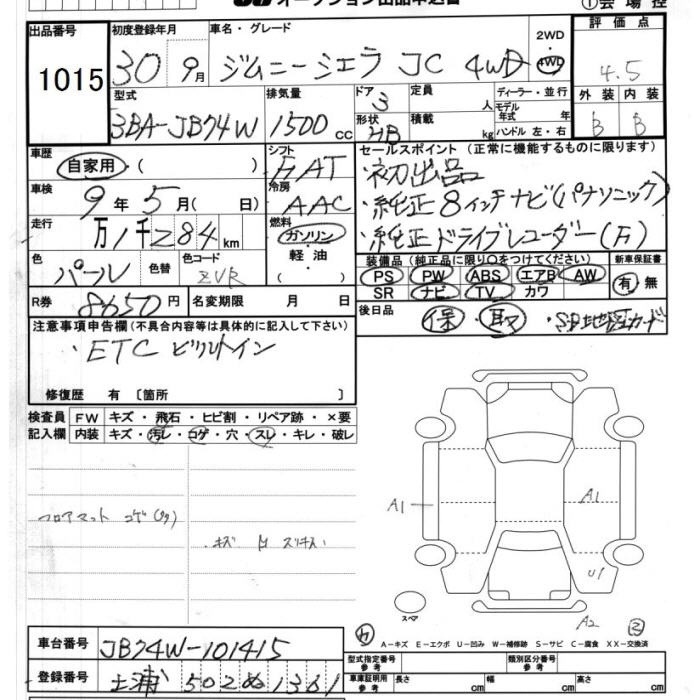 オークション出品申込書
①会場控
出品番号 1015
初度登録年月 30 9月
車名・グレード ジムニーシエラ JC 4WD
2WD 4WD
評価点 4.5
外装 内装
B B
型式 3BA-JB74W
排気量 1500cc
ドア 3
形状 HB
定員 人
積載 kg
ディーラー・並行
モデル年式 年式
ハンドル 左・右
車歴 自家用・( )
シフト FAT
冷房 AAC
セールスポイント (正常に機能するものに限ります)
・初出品
・純正8インチナビ(パナソニック)
・純正ドライブレコーダー(F)
車検 9年5月( 日)
走行 万1千284km
燃料 ガソリン・軽油・( )
色 パール
色替
色コード ZVR
装備品(純正品に限り○をつけてください)
PS PW ABS エアB AW
SR ナビ TV カワ
新車保証書 有・無
R券 8650円
名変期限 月 日
後日品 保・取・SD地図カード
注意事項申告欄(不具合内容等は具体的に記入して下さい)
・ETC ビルトイン
修復歴 有〔箇所 〕
検査員記入欄
FW キズ・飛石・ヒビ割・リペア跡・×要
内装 キズ・汚レ・コゲ・穴・スレ・キレ・破レ
フロアマット コゲ
キズ
A1
A1
U1
A2
スペア
A-キズ E-エクボ U-凹み W-補修跡 S-サビ C-腐食 XX-交換済
車台番号 JB74W-101415
登録番号 土浦 502 ぬ 1361
型式指定番号 参考
類別区分番号 参考
車庫証明用 参考 長さ cm 幅 cm 高さ cm